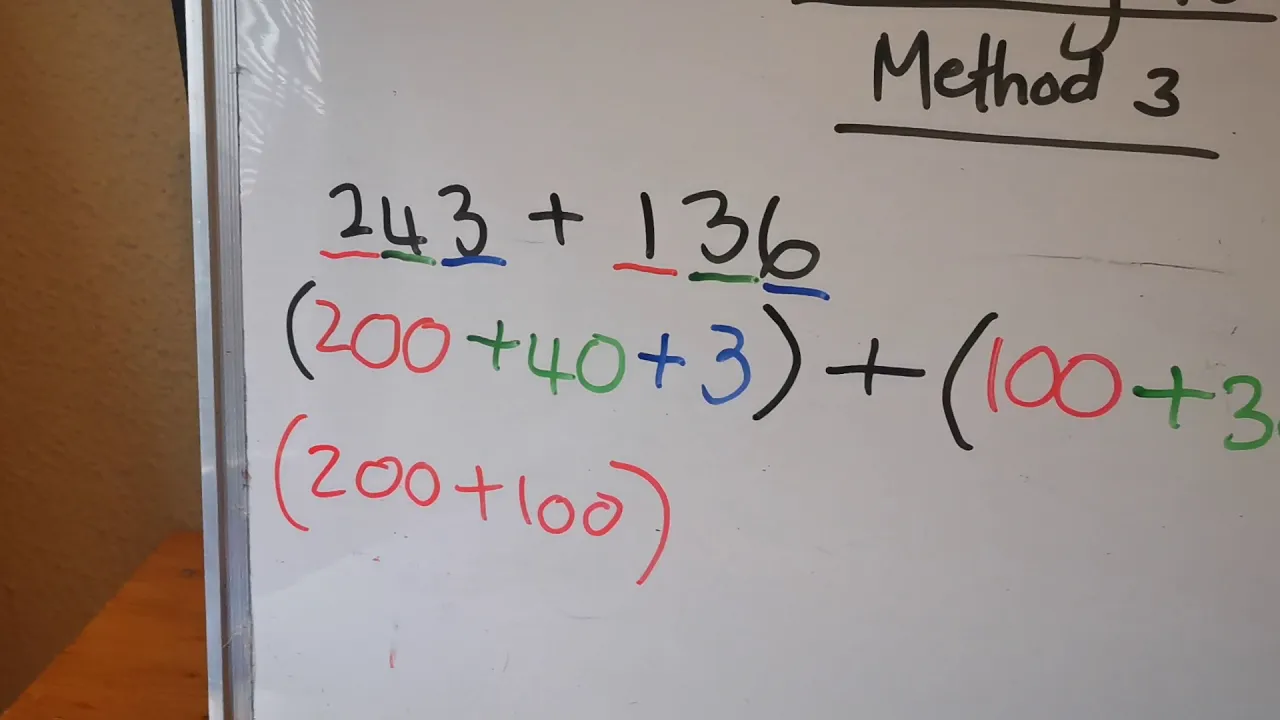 Method 3
243 + 136
(200 + 40 + 3) + (100 + 3
(200 + 100)